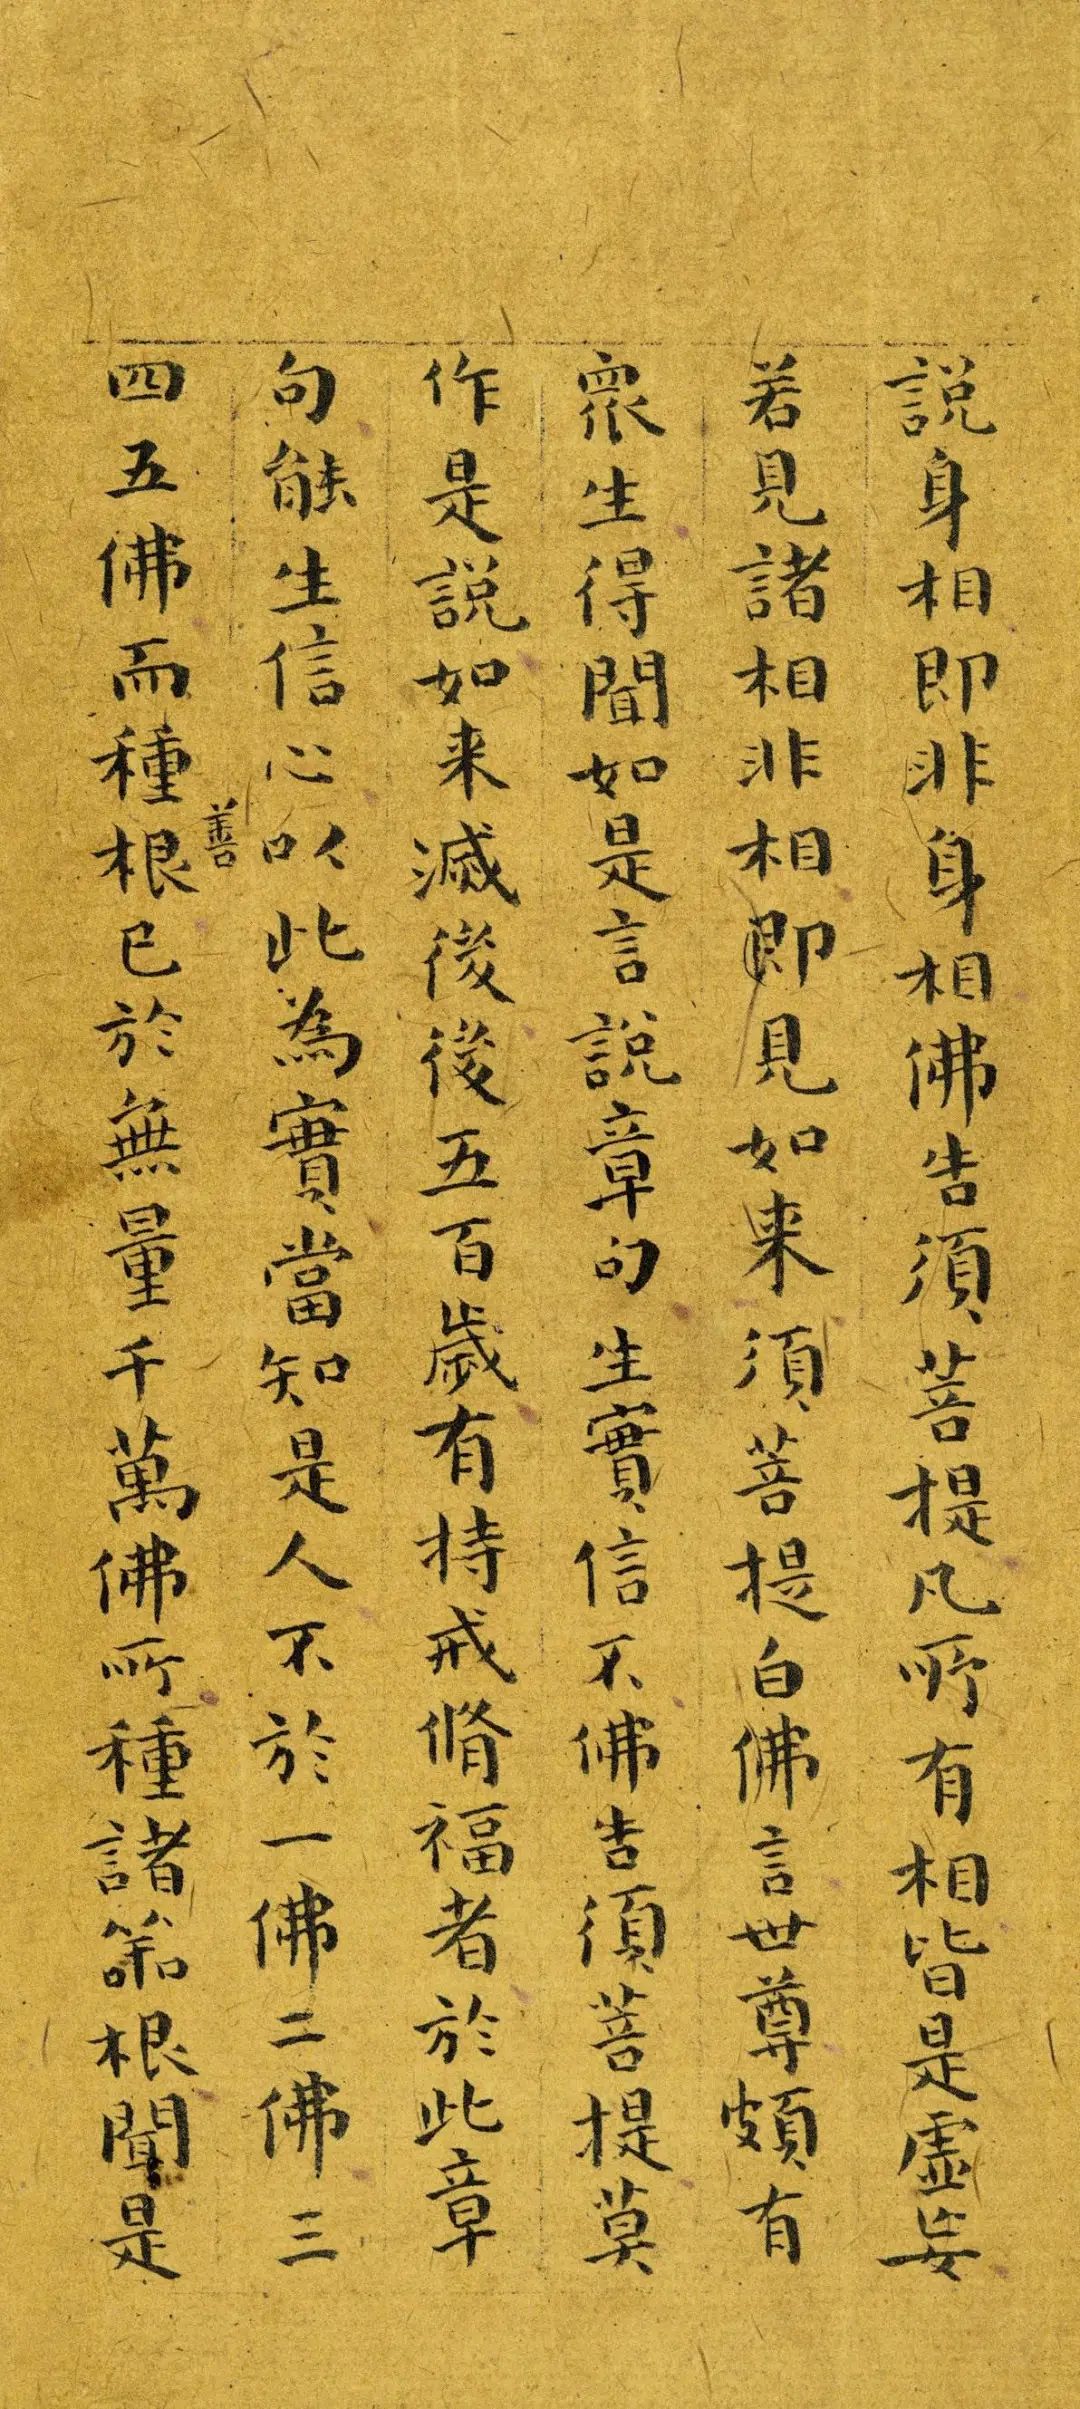 説身相即非身相佛告須菩提凡所有相皆是虛妄
若見諸相非相即見如来須菩提白佛言世尊頗有
眾生得聞如是言説章句生實信不佛告須菩提莫
作是説如来滅後後五百歲有持戒脩福者於此章
句能生信心以此為實當知是人不於一佛二佛三
四五佛而種善根已於無量千萬佛所種諸善根聞是